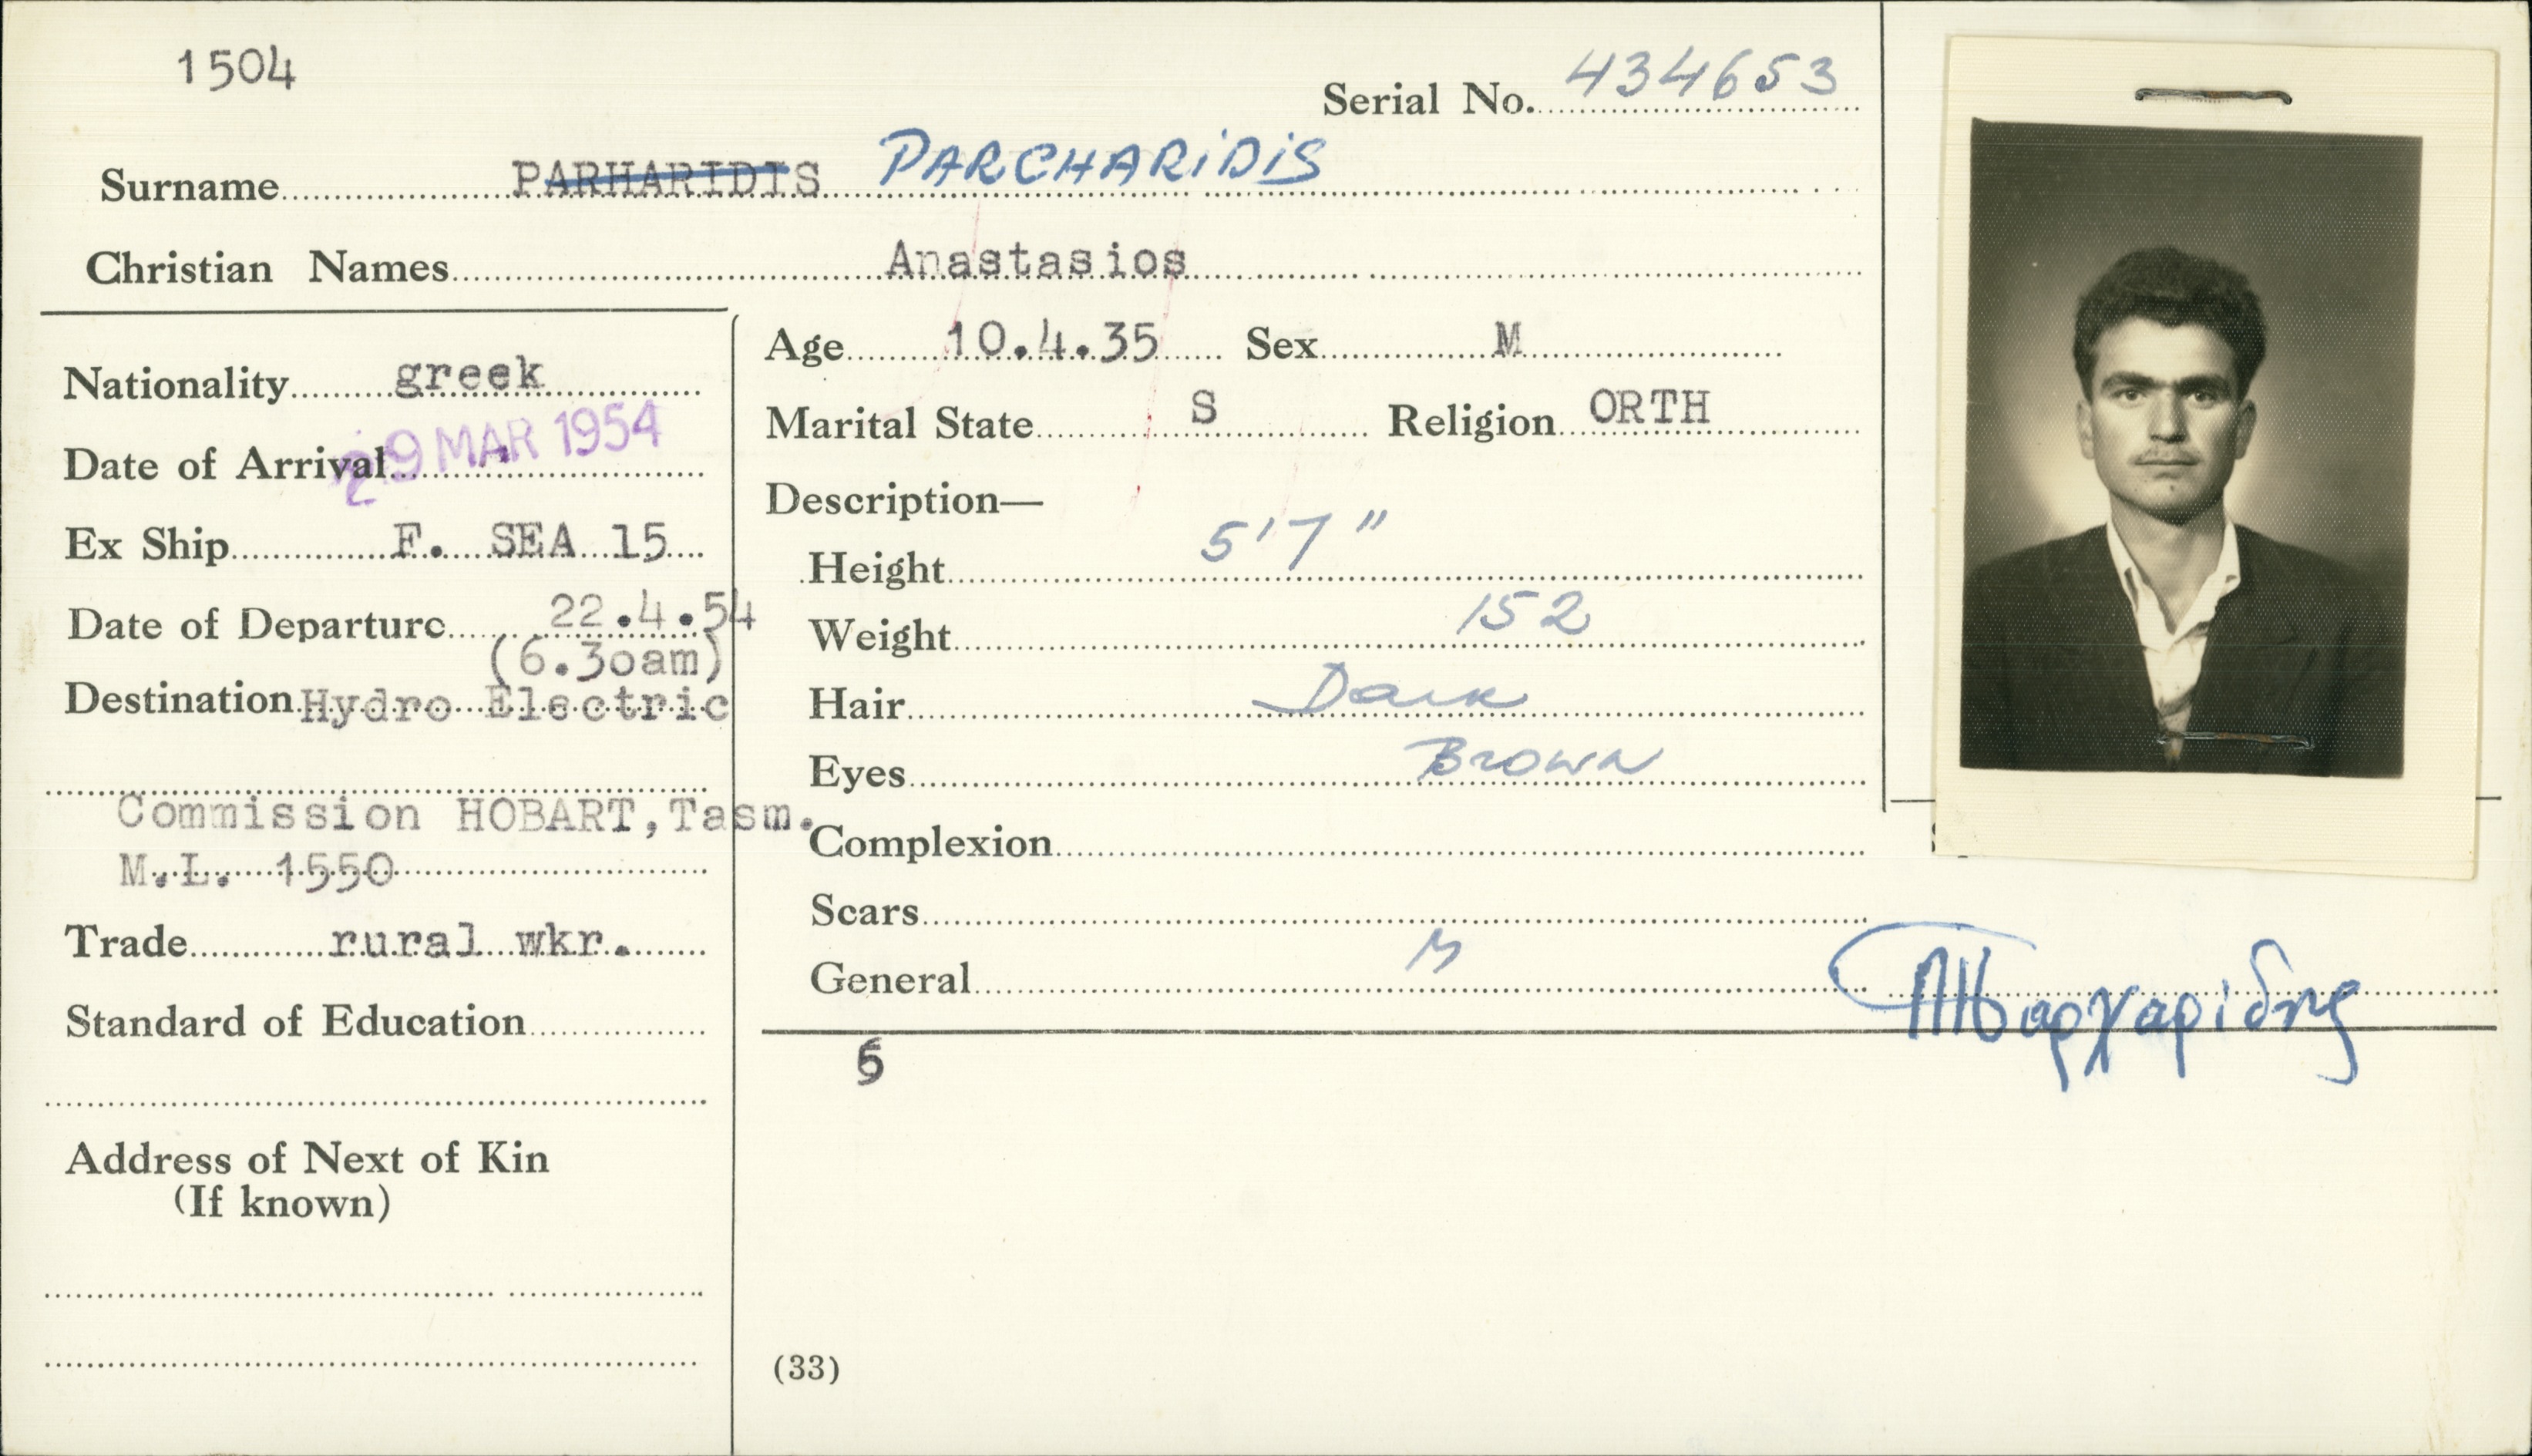 1504
Serial No. 434653
Surname PARHARIDIS PARCHARIDIS
Christian Names Anastasios
Nationality greek
Date of Arrival 29 MAR 1954
Ex Ship F. SEA 15
Date of Departure 22.4.54
(6.30am)
Destination Hydro Electric
Commission HOBART, Tasm.
M.L. 1550
Trade rural wkr.
Standard of Education
Address of Next of Kin
(If known)
Age 10.4.35 Sex M
Marital State S Religion ORTH
Description—
Height 5'7"
Weight 152
Hair Dark
Eyes Brown
Complexion
Scars
General
5
(33)
Παρχαρίδης